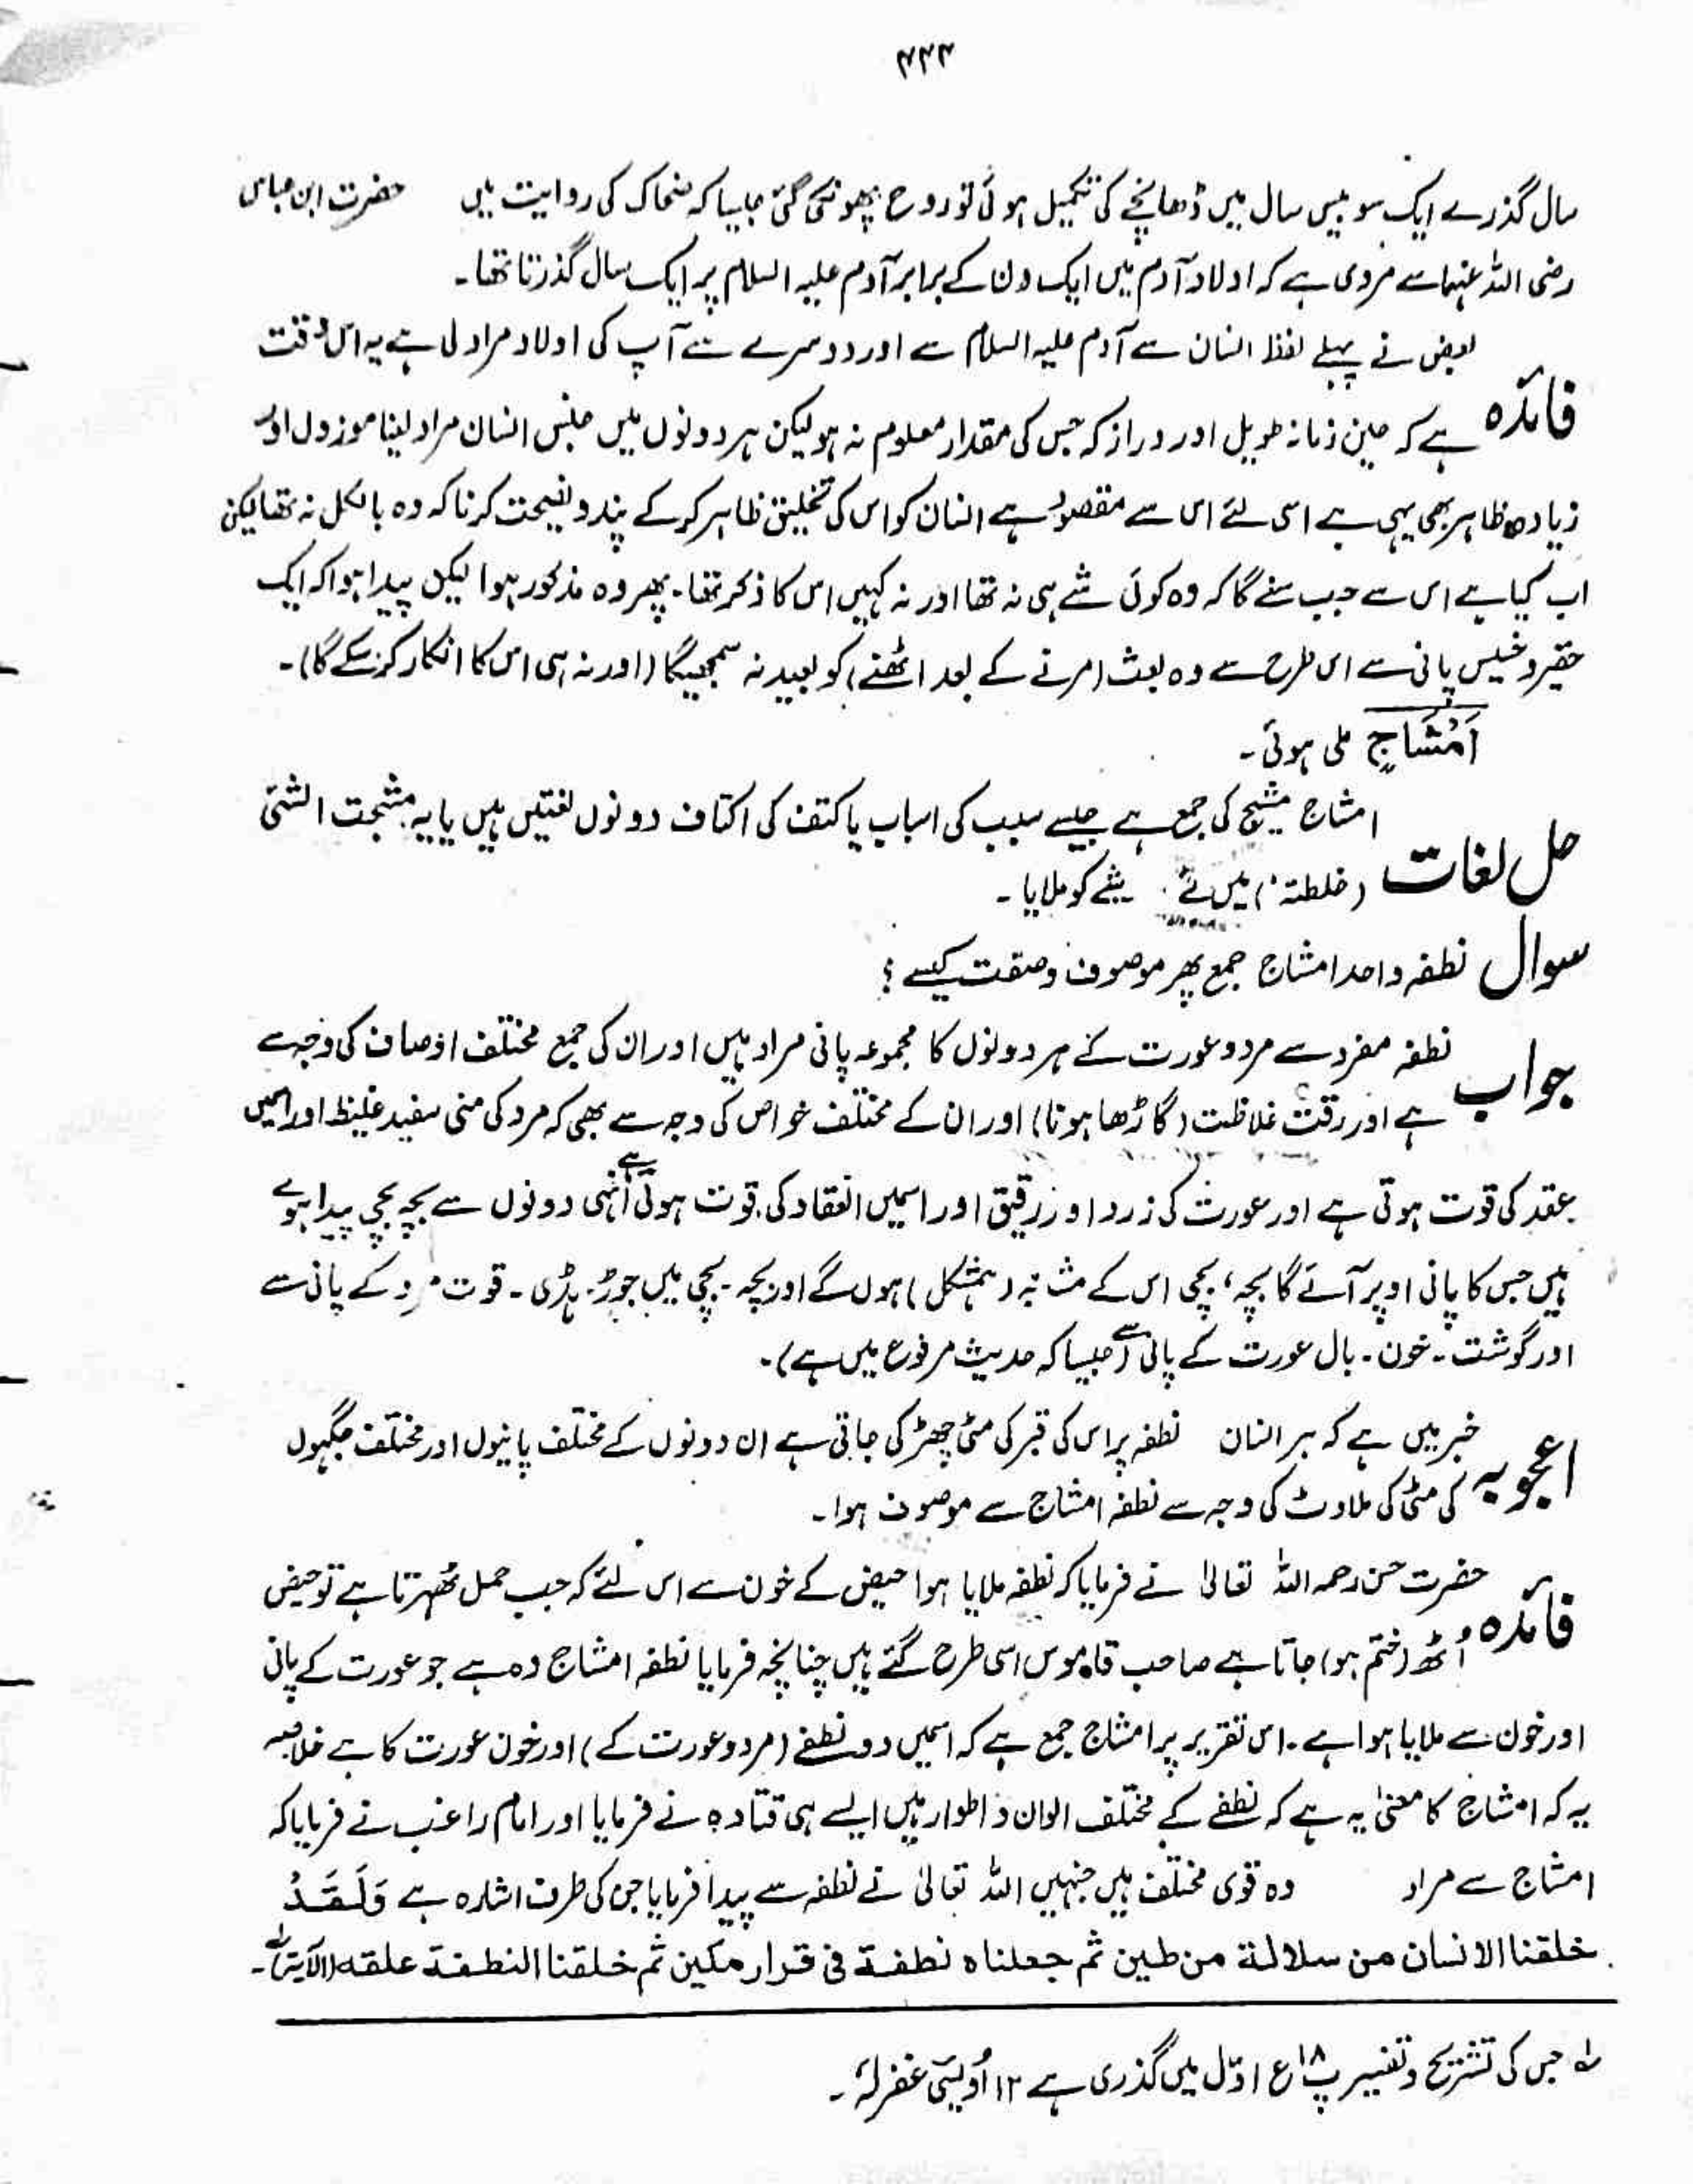 ۴۴۴
سال گذرے ایک سو بیس سال میں ڈھانچے کی تکمیل ہوئی تو روح پھونکی گئی جیسا کہ ضحاک کی روایت میں حضرت ابن عباس
رضی اللہ عنہما سے مروی ہے کہ اولاد آدم میں ایک دن کے برابر آدم علیہ السلام پر ایک سال گذرتا تھا۔
بعض نے پہلے لفظ انسان سے آدم علیہ السلام سے اور دوسرے سے آپ کی اولاد مراد لی ہے یہ اس وقت
فائدہ ہے کہ حین زمانہ طویل اور دراز کہ جس کی مقدار معلوم نہ ہو لیکن ہر دونوں میں جنس انسان مراد لینا موزوں اور
زیادہ ظاہر بھی یہی ہے اسی لئے اس سے مقصود ہے انسان کو اس کی تخلیق ظاہر کر کے پند و نصیحت کرنا کہ وہ بالکل نہ تھا لیکن
اب کیا ہے اس سے جب سنے گا کہ وہ کوئی شے ہی نہ تھا اور نہ کہیں اس کا ذکر تھا۔ پھر وہ مذکور ہوا لیکن پیدا ہوا کہ ایک
حقیر و خسیس پانی سے اس طرح سے وہ بعث (مرنے کے بعد اٹھنے) کو بعید نہ سمجھیگا (اور نہ ہی اس کا انکار کر سکے گا)۔
اَمْشَاجٍ ملی ہوئی۔
امشاج مشیج کی جمع ہے جیسے سبب کی اسباب یا کتف کی اکتاف دونوں لغتیں ہیں یا یہ مشجت الشئی
حل لغات (خلطتہ) میں نے شے کو ملایا۔
سوال نطفہ واحد امشاج جمع پھر موصوف وصفت کیسے ؟
نطفہ مفرد سے مرد و عورت کے ہر دونوں کا مجموعہ پانی مراد ہیں اور ان کی جمع مختلف اوصاف کی وجہ سے
جواب ہے اور رقت غلاظت (گاڑھا ہونا) اور ان کے مختلف خواص کی وجہ سے بھی کہ مرد کی منی سفید غلیظ اور اسمیں
عقد کی قوت ہوتی ہے اور عورت کی زرد اور رقیق اور اسمیں انعقاد کی قوت ہوتی ہے انہی دونوں سے بچہ بچی پیدا ہوتے
ہیں جس کا پانی اوپر آئے گا بچہ، بچی اس کے مشابہ (ہمشکل) ہوں گے اور بچہ۔ بچی میں جوڑ۔ ہڈی۔ قوت مرد کے پانی سے
اور گوشت۔ خون۔ بال عورت کے پانی سے (جیسا کہ حدیث مرفوع میں ہے)۔
خبر میں ہے کہ ہر انسان نطفہ پر اس کی قبر کی مٹی چھڑکی جاتی ہے ان دونوں کے مختلف پانیوں اور مختلف جگہوں
اعجوبہ کی مٹی کی ملاوٹ کی وجہ سے نطفہ امشاج سے موصوف ہوا۔
حضرت حسن رحمہ اللہ تعالیٰ نے فرمایا کہ نطفہ ملایا ہوا حیض کے خون سے اس لئے کہ جب حمل ٹھہرتا ہے تو حیض
فائدہ اُٹھ (ختم ہو) جاتا ہے صاحب قاموس اسی طرح گئے ہیں چنانچہ فرمایا نطفہ امشاج وہ ہے جو عورت کے پانی
اور خون سے ملایا ہوا ہے۔ اس تقریر پر امشاج جمع ہے کہ اسمیں دو نطفے (مرد و عورت کے) اور خون عورت کا ہے خلاصہ
یہ کہ امشاج کا معنیٰ یہ ہے کہ نطفے کے مختلف الوان و اطوار ہیں ایسے ہی قتادہ نے فرمایا اور امام راغب نے فرمایا کہ
امشاج سے مراد وہ قوی مختلف ہیں جنہیں اللہ تعالیٰ نے نطفہ سے پیدا فرمایا جن کی طرف اشارہ ہے وَلَقَدْ
خلقنا الانسان من سلالة من طين ثم جعلناه نطفة فى قرار مكين ثم خلقنا النطفة علقه (الآیۃ)لہ۔
لہ جس کی تشریح و تفسیر پ ۱۸ ع اوّل میں گذری ہے ۱۲ اُویسی غفرلہٗ۔